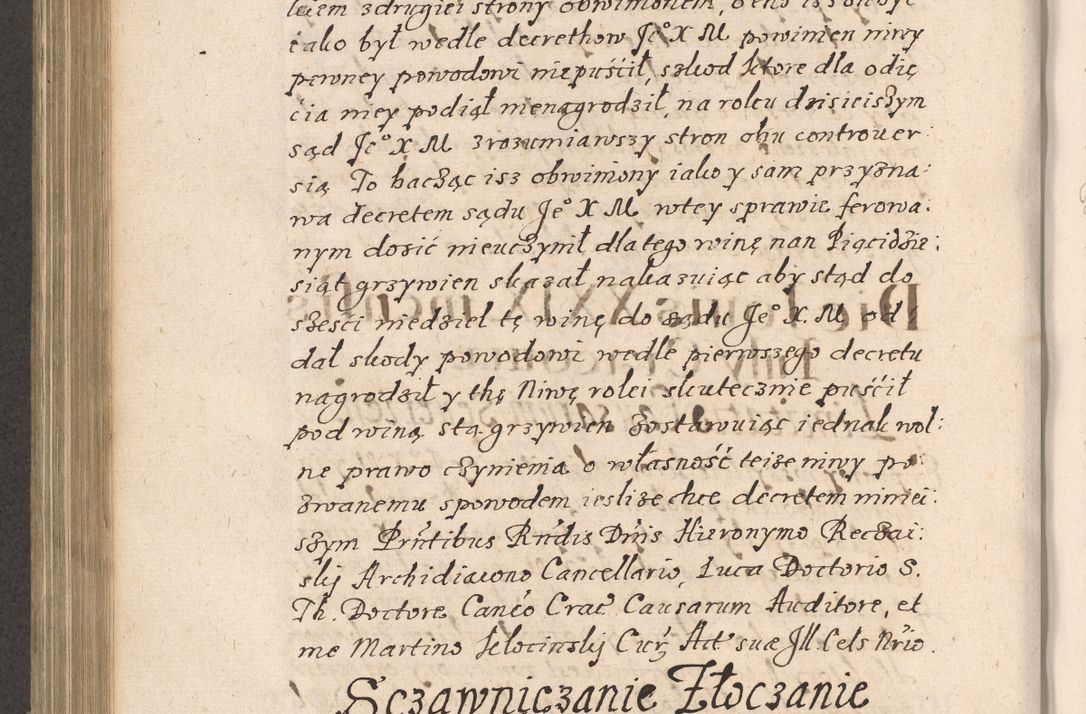 lcem zdrugiei strony obwinionem, o eno isz on być
iako był wedle decrethow Je° X M powinien niwy
pewney powodowi niepuścił, szkod ktore dla odię
cia niey podiął nienagrodził, na rokcu dzisieiszym
sąd Je° X M zrozumiawszy stron obu controuer
sią To bacząc isz obwiniony iako y sam przyzna:
wa decretem sądu Je° X M wtey sprawie ferowa:
nym dosić nieuczynił dlatego winę nan Pięcidzie:
siąt grzywien skazał nakazuiąc aby stąd do
sześci niedziel tę winę do sądu Je° X. M od
dał skody powodowi wedle pierwszego decretu
nagrodził y thę Niwę rolei skutecznie puścił
pod winą sta grzywien zostawuiąc iednak wol:
ne prawo czynienia o własność teize niwy po:
zwanemu spowodem ieslize chce decretem niniei:
szym Prńtibus Rńdis Dńis Hieronymo Reczai:
skij Archidiacono Cancellario, Luca Doctorio S.
Th. Doctore Canćo Crac̃. Causarum Auditore, et
me Martino Słocinskij Cur̃ Act suæ Jll. Cels Nr̃io.
Sczawniczanie Złoczanie